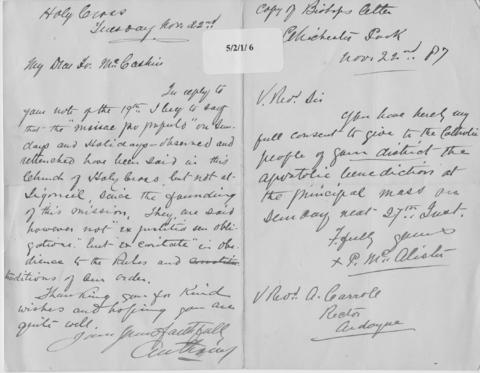 Holy Cross
Tuesday Nov 22nd
My Dear Dr. McCashin
In reply to
your note of the 19th. I beg to say
that the "missae pro populo" on Sun-
days and Holidays - observed and
retrenched have been said in this
Church of Holy Cross but not at
Ligoniel, since the founding
of this mission. They are said
however not "ex justitia
gations" but "ex caritate" in obe-
dience to the Rules and
traditions of our order.
Thanking you for kind
wishes and hoping you are
quite well.
I am yours faithfull
5/2/1/6
Copy of Bishops letter
Chichester Park
Nov. 22nd 87
V. Revd. Sir
You have hereby my
full consent to give to the Catholic
people of your district the
apostolic benediction at
the principal mass on
Sunday next 27th Inst.
yours
+ P. McAlister
V Revd. A. Carroll
Rector
Ardoyne